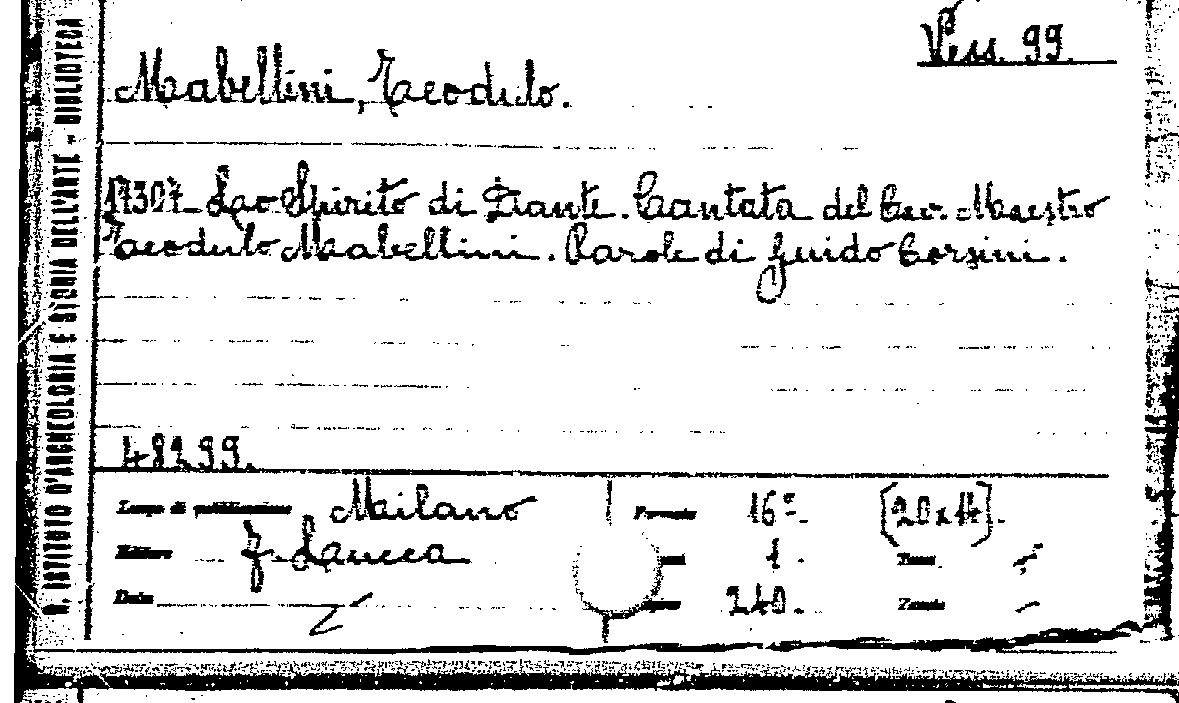 Vess. 99.
Mabellini, Teodulo.
17307 Lo Spirito di Dante. Cantata del Cav. Maestro
Teodulo Mabellini. Parole di Guido Corsini.
48299.
Luogo di pubblicazione Milano
Formato 16º. [20x14].
Editore F. Lucca
1. Tomi
Data
240. Tavole
R. ISTITUTO D'ARCHEOLOGIA E STORIA DELL'ARTE - BIBLIOTECA